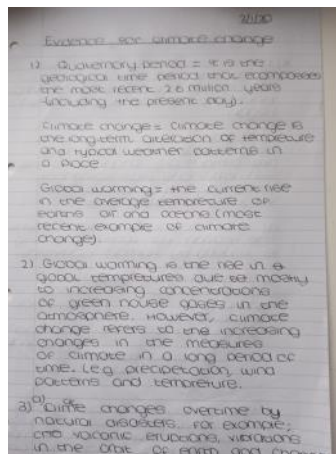 7/1/20
Evidence for climate change
1) Quaternary period = it is the
geological time period that encompasses
the most recent 2.6 million years
(including the present day).
Climate change = Climate change is
the long-term alteration of temperature
and typical weather patterns in
a place
Global warming = the current rise
in the average temperature of
earths air and oceans (most
recent example of climate
change).
2) Global warming is the rise in
global tempretures due to mostly
to increasing concentrations
of green house gases in the
atmosphere. However, climate
change refers to the increasing
changes in the measures
of climate in a long period of
time. (e.g precipetation, wind
patterns and tempreture.
3) a) changes overtime by
natural disasters. For example;
volcanic eruptions, vibrations
in the orbit of earth and